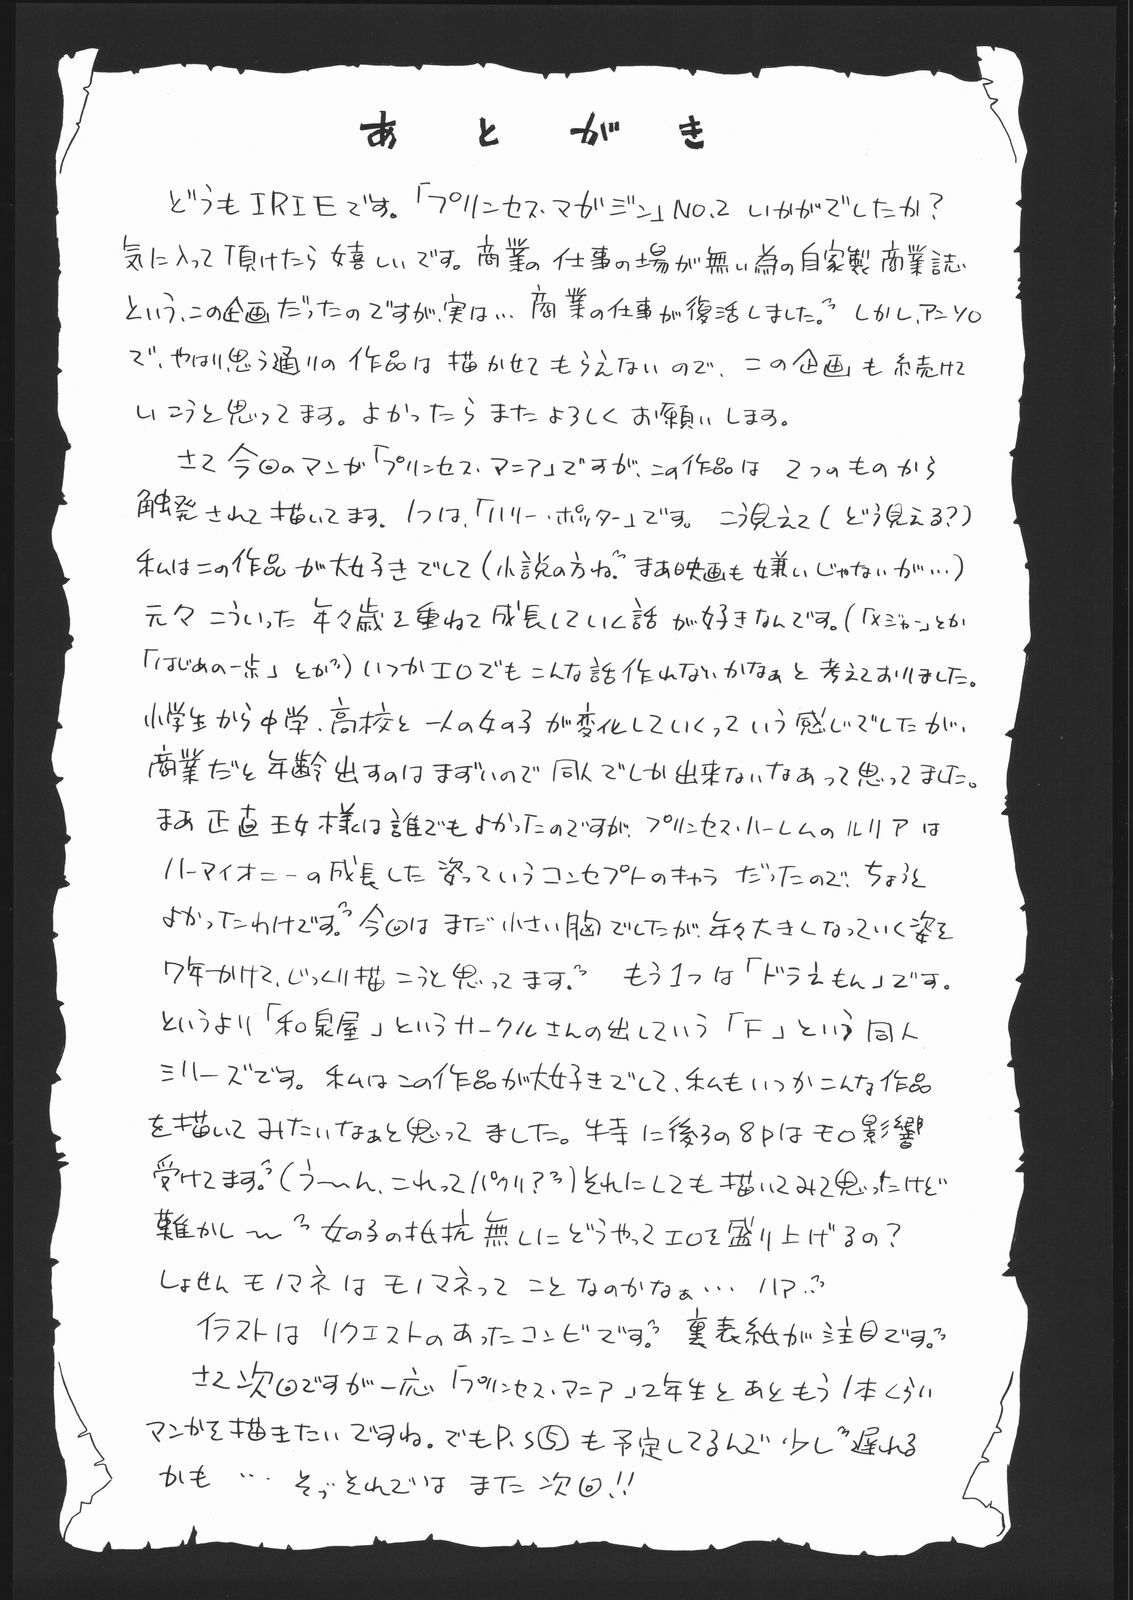 あとがき
どうもIRIEです。「プリンセス・マガジン」NO.2 いかがでしたか？
気に入って頂けたら嬉しいです。商業の仕事の場が無い為の自家製商業誌
という、この企画だったのですが、実は… 商業の仕事が復活しました。しかし、アンソロ
で、やはり思う通りの作品は描かせてもらえないので、この企画も続けて
いこうと思ってます。よかったらまたよろしくお願いします。
さて今回のマンガ「プリンセス・マニア」ですが、この作品は 2つのものから
触発されて描いてます。1つは、「ハリー・ポッター」です。 こう見えて(どう見える?)
私はこの作品が大好きでして(小説の方ね。まあ映画も嫌いじゃないが…)
元々こういった年々歳を重ねて成長していく話が好きなんです。(「メジャー」とか
「はじめの一歩」とか)いつかエロでもこんな話作れないかなぁと考えておりました。
小学生から中学、高校と一人の女の子が変化していくっていう感じでしたが、
商業だと年齢出すのはまずいので同人でしか出来ないなあって思ってました。
まあ正直王女様は誰でもよかったのですが、プリンセス・ハーレムのルリアは
ハーマイオニーの成長した姿っていうコンセプトのキャラだったので、ちょうど
よかったわけです。今回はまだ小さい胸でしたが、年々大きくなっていく姿を
7年かけて、じっくり描こうと思ってます。 もう1つは「ドラえもん」です。
というより「和泉屋」というサークルさんの出している「F」という同人
シリーズです。私はこの作品が大好きでして、私もいつかこんな作品
を描いてみたいなぁと思ってました。特に後ろの8Pはモロ影響
受けてます。(う〜ん、これってパクリ?)それにしても描いてみて思ったけど
難かし〜 女の子の抵抗無しにどうやってエロを盛り上げるの？
しょせんモノマネはモノマネってことなのかなぁ… ハァ…
イラストはリクエストのあったコンビです。裏表紙が注目です。
さて次回ですが一応「プリンセス・マニア」2年生とあともう1本くらい
マンガを描きたいですね。でもP.S⑤も予定してるんで少し遅れる
かも … そっそれではまた次回!!